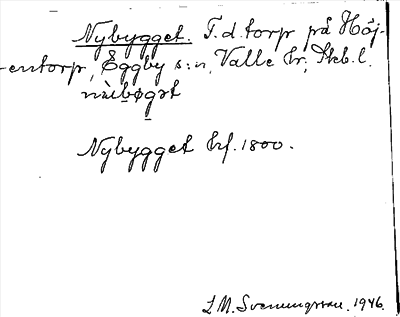 Nybygget. T.d. torp på Höj-
entorp, Eggby s:n, Valle hr, Skb.l.
nỳibøgət
Nybygget hf. 1800.
L M. Svenungsson. 1946.